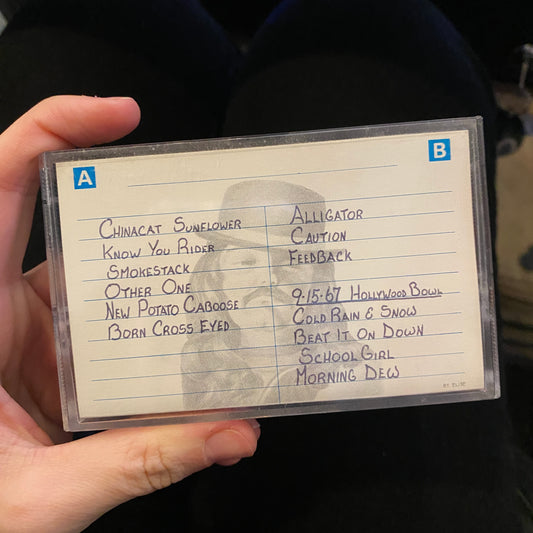 A
B
CHINACAT SUNFLOWER
KNOW YOU RIDER
SMOKESTACK
OTHER ONE
NEW POTATO CABOOSE
BORN CROSS EYED
ALLIGATOR
CAUTION
FEEDBACK
9·15·67 HOLLYWOOD BOWL
COLD RAIN & SNOW
BEAT IT ON DOWN
SCHOOL GIRL
MORNING DEW